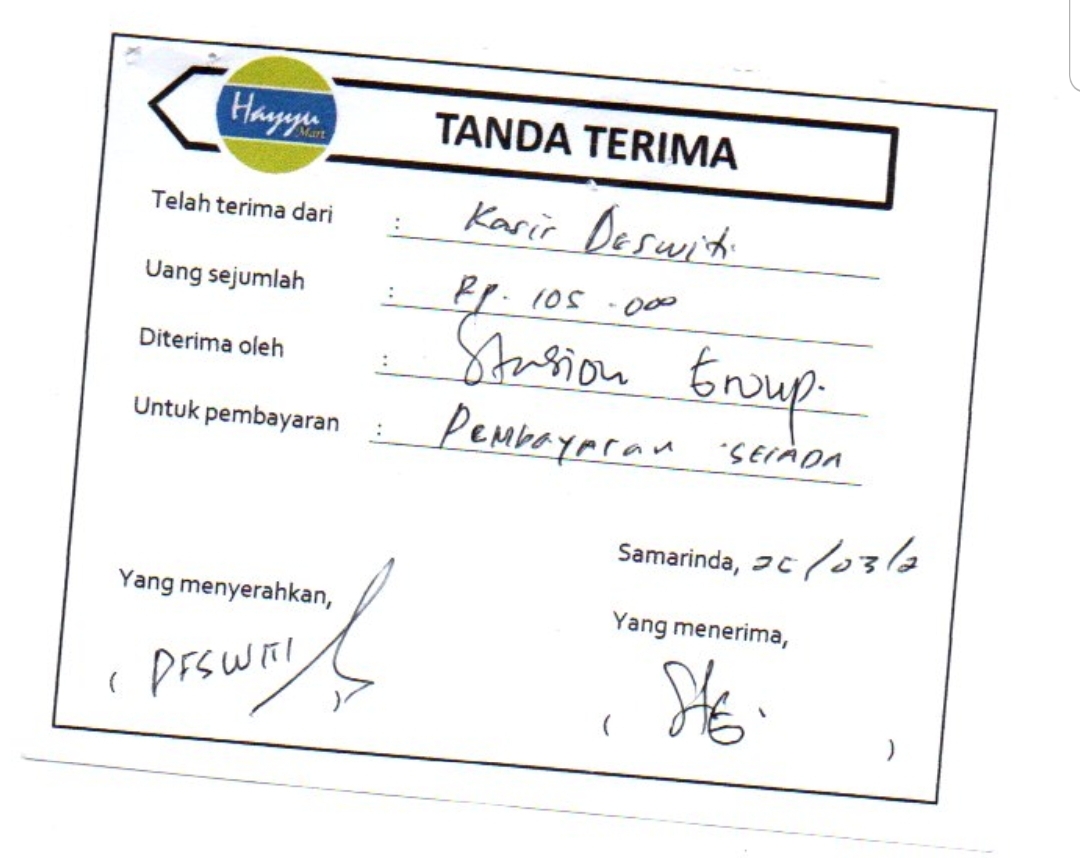 Hayyu
Mart
TANDA TERIMA
Telah terima dari : Kasir Deswiti
Uang sejumlah : Rp. 105.000
Diterima oleh : Stasion Group.
Untuk pembayaran : Pembayaran SELADA
Samarinda, 25/03/2
Yang menyerahkan,
Yang menerima,
( DESWITI )
( )